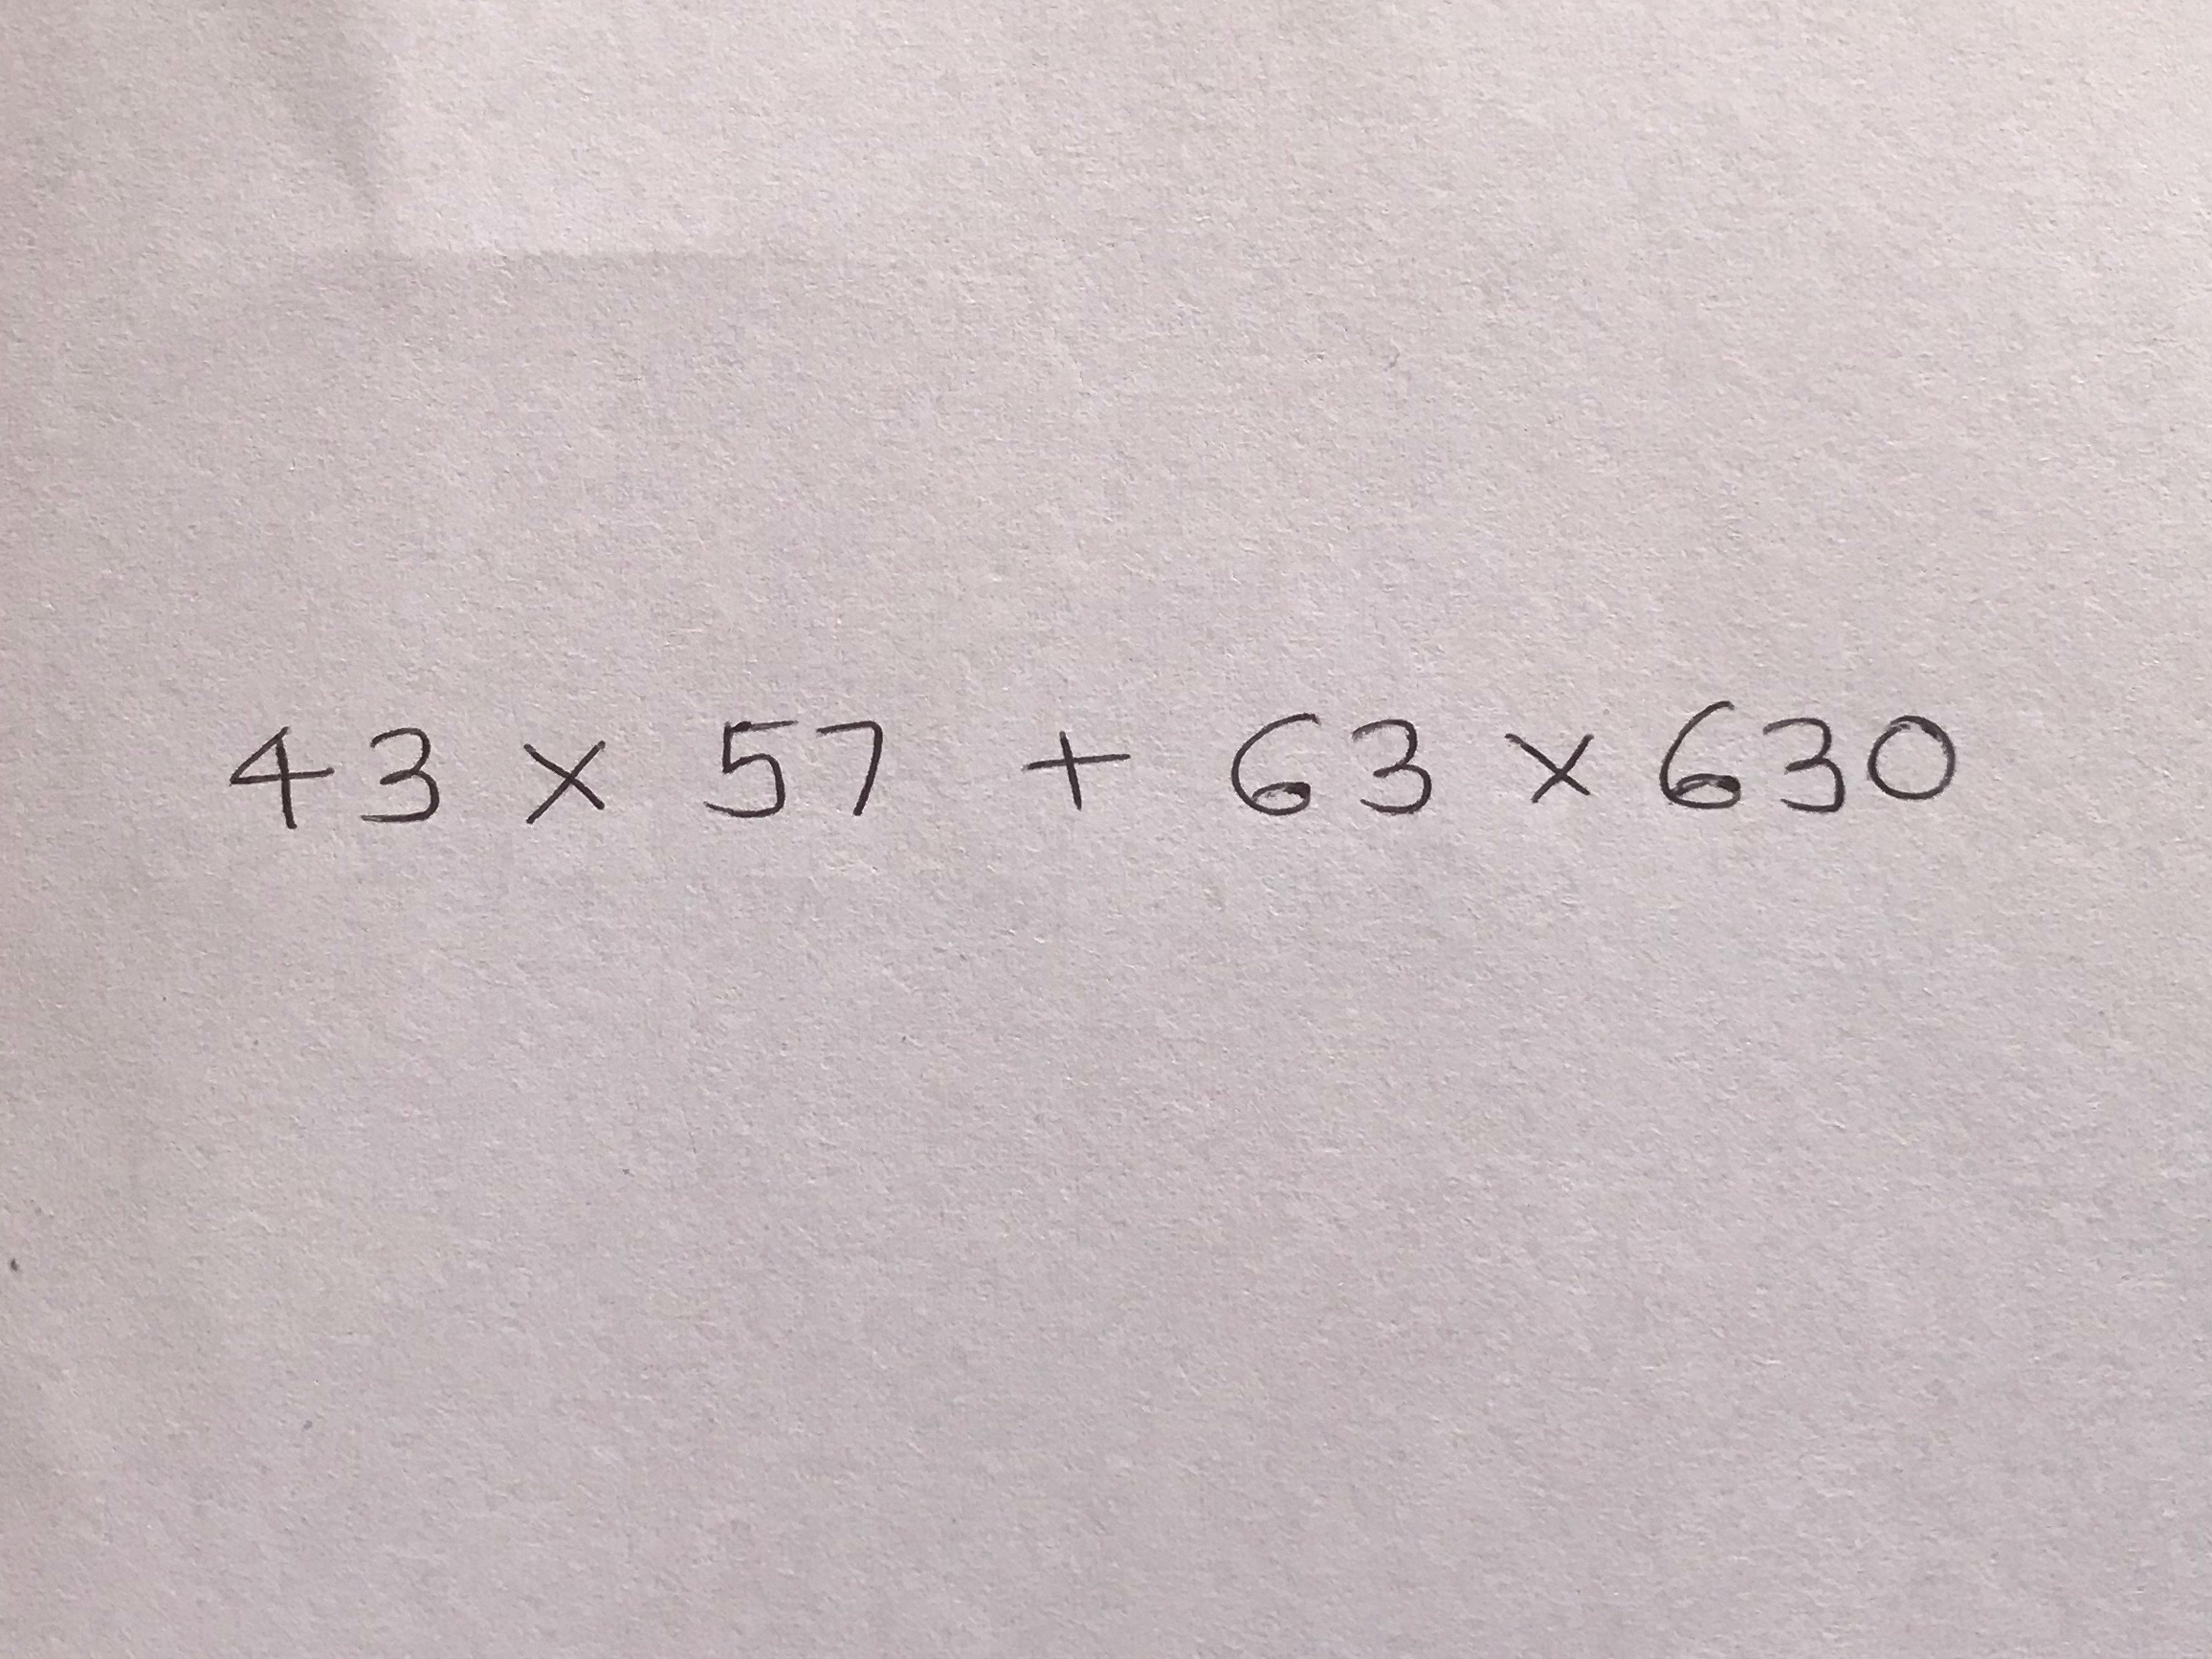 43 × 57 + 63 × 630